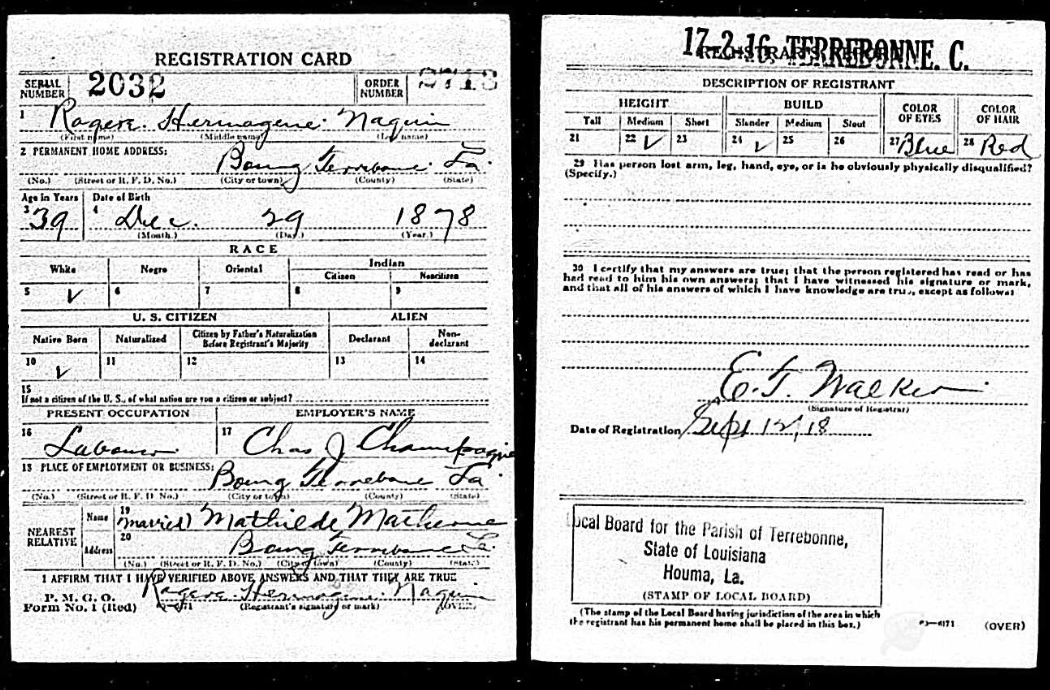 REGISTRATION CARD
SERIAL NUMBER 2032 ORDER NUMBER 2713
1 Rogere Hermogene Naquin
(First name) (Middle name) (Last name)
2 PERMANENT HOME ADDRESS:
Bourg Terrebonne La
(No.) (Street or R. F. D. No.) (City or town) (County) (State)
Age in Years Date of Birth
3 39 4 Dec. 29 1878
(Month.) (Day.) (Year.)
RACE
White Negro Oriental Indian
Citizen Noncitizen
5 ✓ 6 7 8 9
U. S. CITIZEN ALIEN
Native Born Naturalized Citizen by Father's Naturalization Before Registrant's Majority Declarant Non-declarant
10 ✓ 11 12 13 14
15
If not a citizen of the U. S., of what nation are you a citizen or subject?
PRESENT OCCUPATION EMPLOYER'S NAME
16 Labourer 17 Chas J Champagne
18 PLACE OF EMPLOYMENT OR BUSINESS:
Bourg Terrebonne La
(No.) (Street or R. F. D. No.) (City or town) (County) (State)
NEAREST RELATIVE Name 19 (married) Mathilde Matherne
Address 20 Bourg Terrebonne La.
(No.) (Street or R. F. D. No.) (City or town) (County) (State)
I AFFIRM THAT I HAVE VERIFIED ABOVE ANSWERS AND THAT THEY ARE TRUE
P. M. G. O.
Form No. 1 (Red) Rogere Hermogene Naquin
(Registrant's signature or mark) (OVER)
17-2-16 TERREBONNE. C.
REGISTRAR'S REPORT
DESCRIPTION OF REGISTRANT
HEIGHT BUILD COLOR OF EYES COLOR OF HAIR
Tall Medium Short Slender Medium Stout
21 22 ✓ 23 24 ✓ 25 26 27 Blue 28 Red
29 Has person lost arm, leg, hand, eye, or is he obviously physically disqualified?
(Specify.)
30 I certify that my answers are true; that the person registered has read or has
had read to him his own answers; that I have witnessed his signature or mark,
and that all of his answers of which I have knowledge are true, except as follows:
E. T. Walker
(Signature of Registrar)
Date of Registration Sept 12/18
Local Board for the Parish of Terrebonne,
State of Louisiana
Houma, La.
(STAMP OF LOCAL BOARD)
(The stamp of the Local Board having jurisdiction of the area in which
the registrant has his permanent home shall be placed in this box.)
03—6171 (OVER)